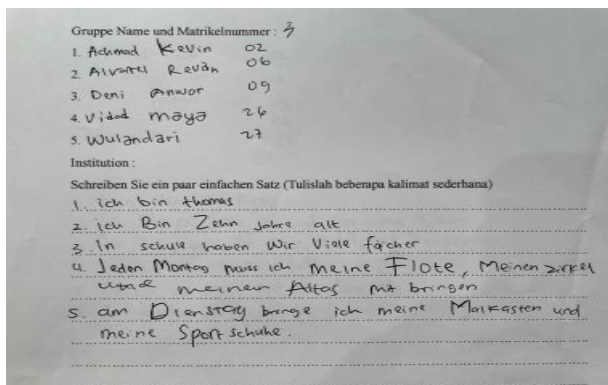 Gruppe Name und Matrikelnummer : 3
1. Achmad Kevin 02
2. Alvarel Revan 06
3. Deni Anwar 09
4. Vidad maya 26
5. Wulandari 27
Institution :
Schreiben Sie ein paar einfachen Satz (Tulislah beberapa kalimat sederhana)
1. ich bin thomas
2. ich Bin Zehn Jahre alt
3. In schule haben Wir Viele fächer
4. Jeden Montag muss ich meine Flote, Meinen zirkel
unde meinen Altas mit bringen
5. am Dienstag bringe ich meine Malkasten und
meine Sport schuhe.